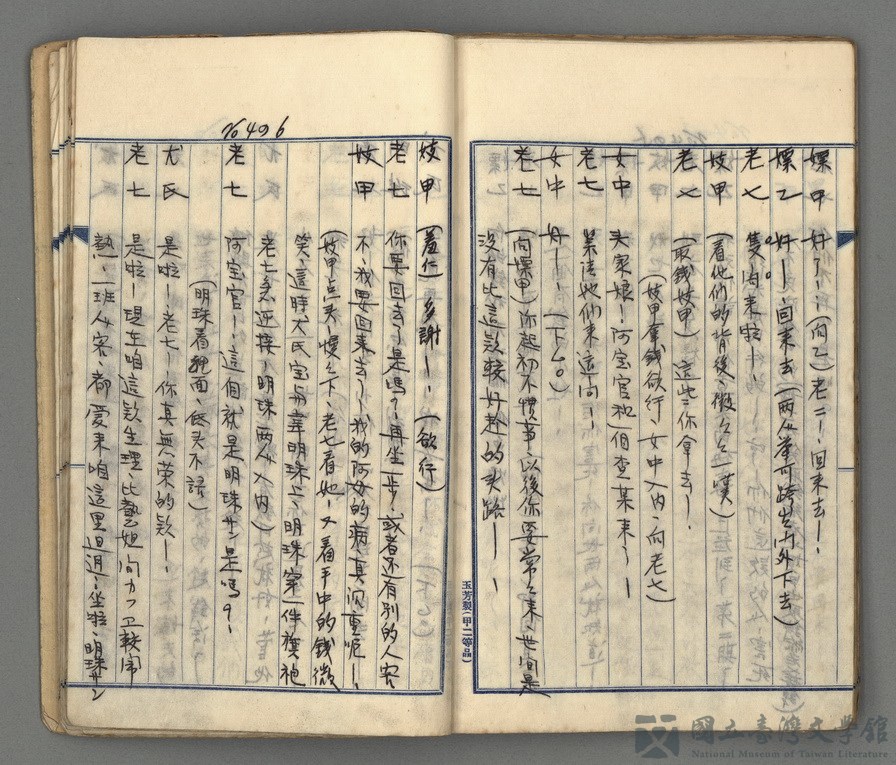 嫖甲 好了…(向乙)老二…回來去…
嫖乙 好…回來去(兩人帶可跨生內外下去)
老七 隻內來啦…
妓甲 (看他們的背後、微々之一嘆)
老七 (取錢妓甲)這些你拿去…
(妓甲拿錢欲行、女中入內、向老七)
女中 头家娘!阿宝官和
老七 來這向…
女中 好…(下去)
老七 (向嫖甲)你起初不慣事、以後你要常々來、世间是
沒有比這款較好趁的头路…
玉芳製(甲二等品)
No 406
妓甲 (羞行)多謝…(欲行)
老七 你要回去了是嗎?再坐一步、或者还有別的人客
妓甲 不、我要回來去了…我的阿母的病、真沉重呢…
(妓甲点头、慢々下、老七看她、又看手中的錢微
笑、這時尤氏宝官牽明珠上、明珠穿一件旗袍
老七急迎接、明珠兩人入內)
老七 阿宝官…這個就是明珠サン是嗎?
(明珠看裡面、低头不語)
尤氏 是啦…老七…你真無荣的款…
老七 是啦…現在咱這款生理、比藝妲间カフエ較鬧
熱…一班人客、都愛來咱這里迌迌…坐啦、明珠サン
國立臺灣文學館
National Museum of Taiwan Literature